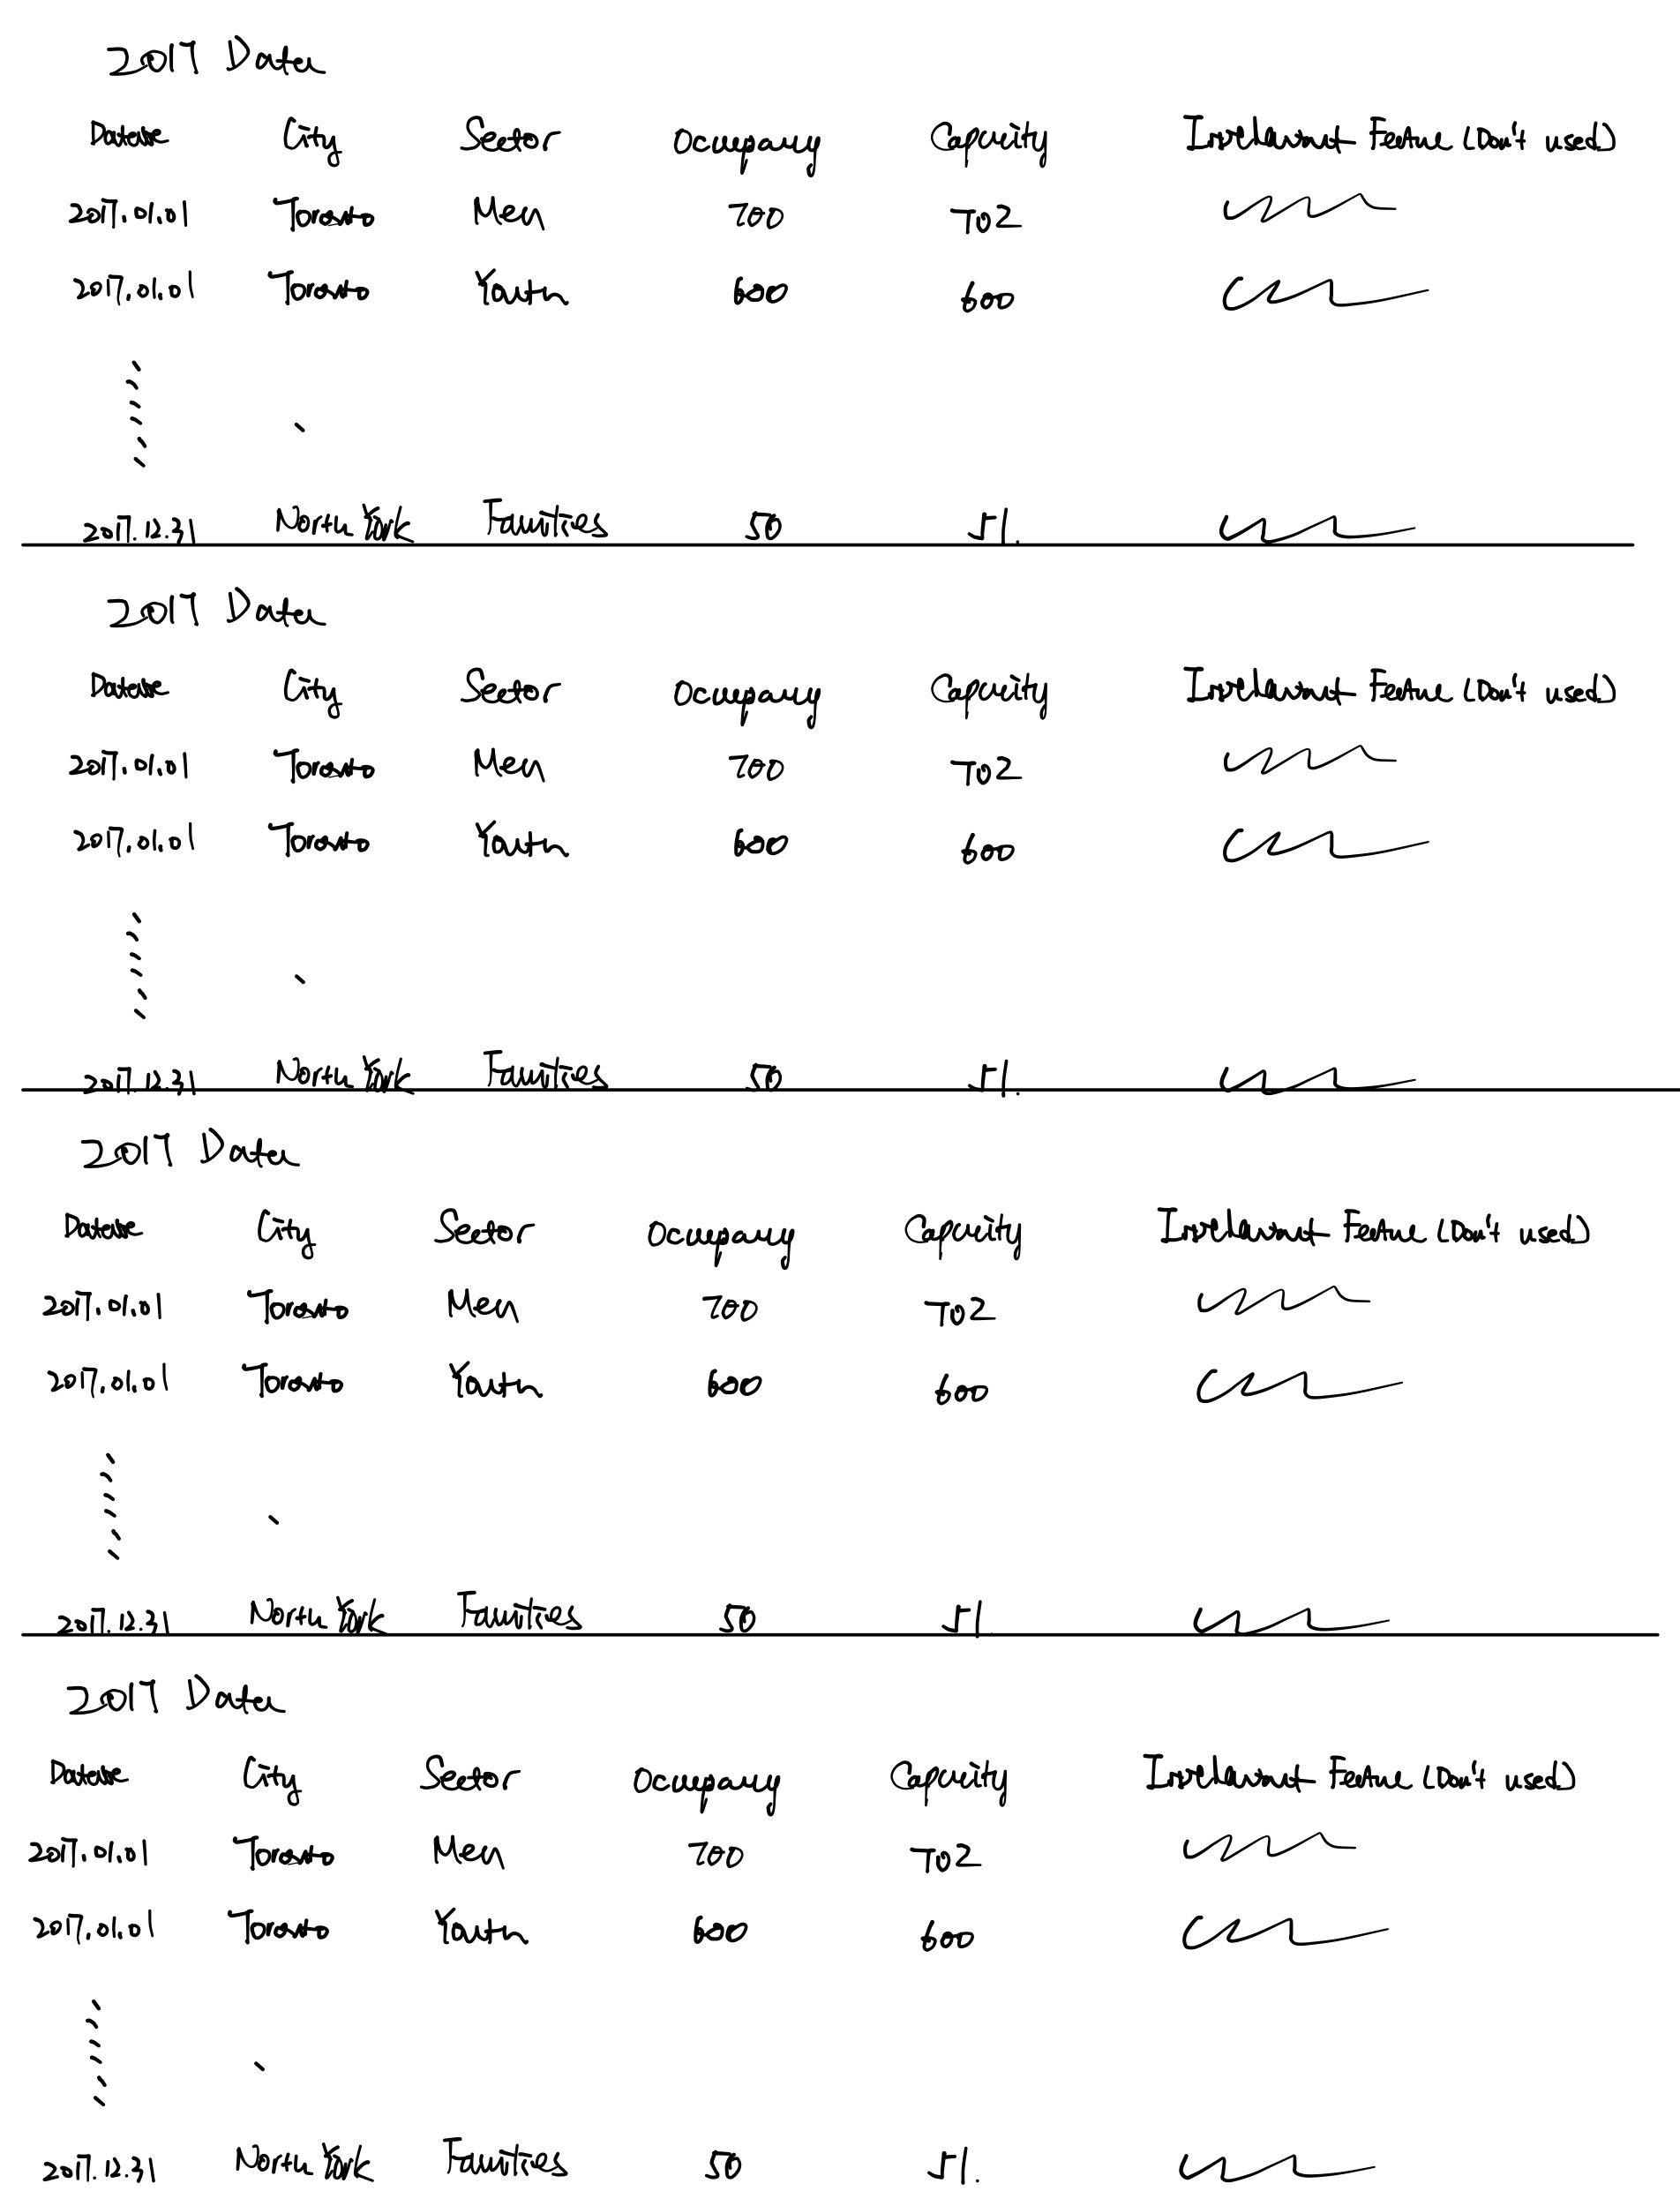 2017 Data
Date City Sector Occupancy Capacity Irrelavant Feature (Don't used)
2017.01.01 Toronto Men 700 702
2017.01.01 Toronto Youth 600 600
2017.12.31 North York Families 50 51.
2017 Data
Date City Sector Occupancy Capacity Irrelavant Feature (Don't used)
2017.01.01 Toronto Men 700 702
2017.01.01 Toronto Youth 600 600
2017.12.31 North York Families 50 51.
2017 Data
Date City Sector Occupancy Capacity Irrelavant Feature (Don't used)
2017.01.01 Toronto Men 700 702
2017.01.01 Toronto Youth 600 600
2017.12.31 North York Families 50 51
2017 Data
Date City Sector Occupancy Capacity Irrelavant Feature (Don't used)
2017.01.01 Toronto Men 700 702
2017.01.01 Toronto Youth 600 600
2017.12.31 North York Families 50 51.